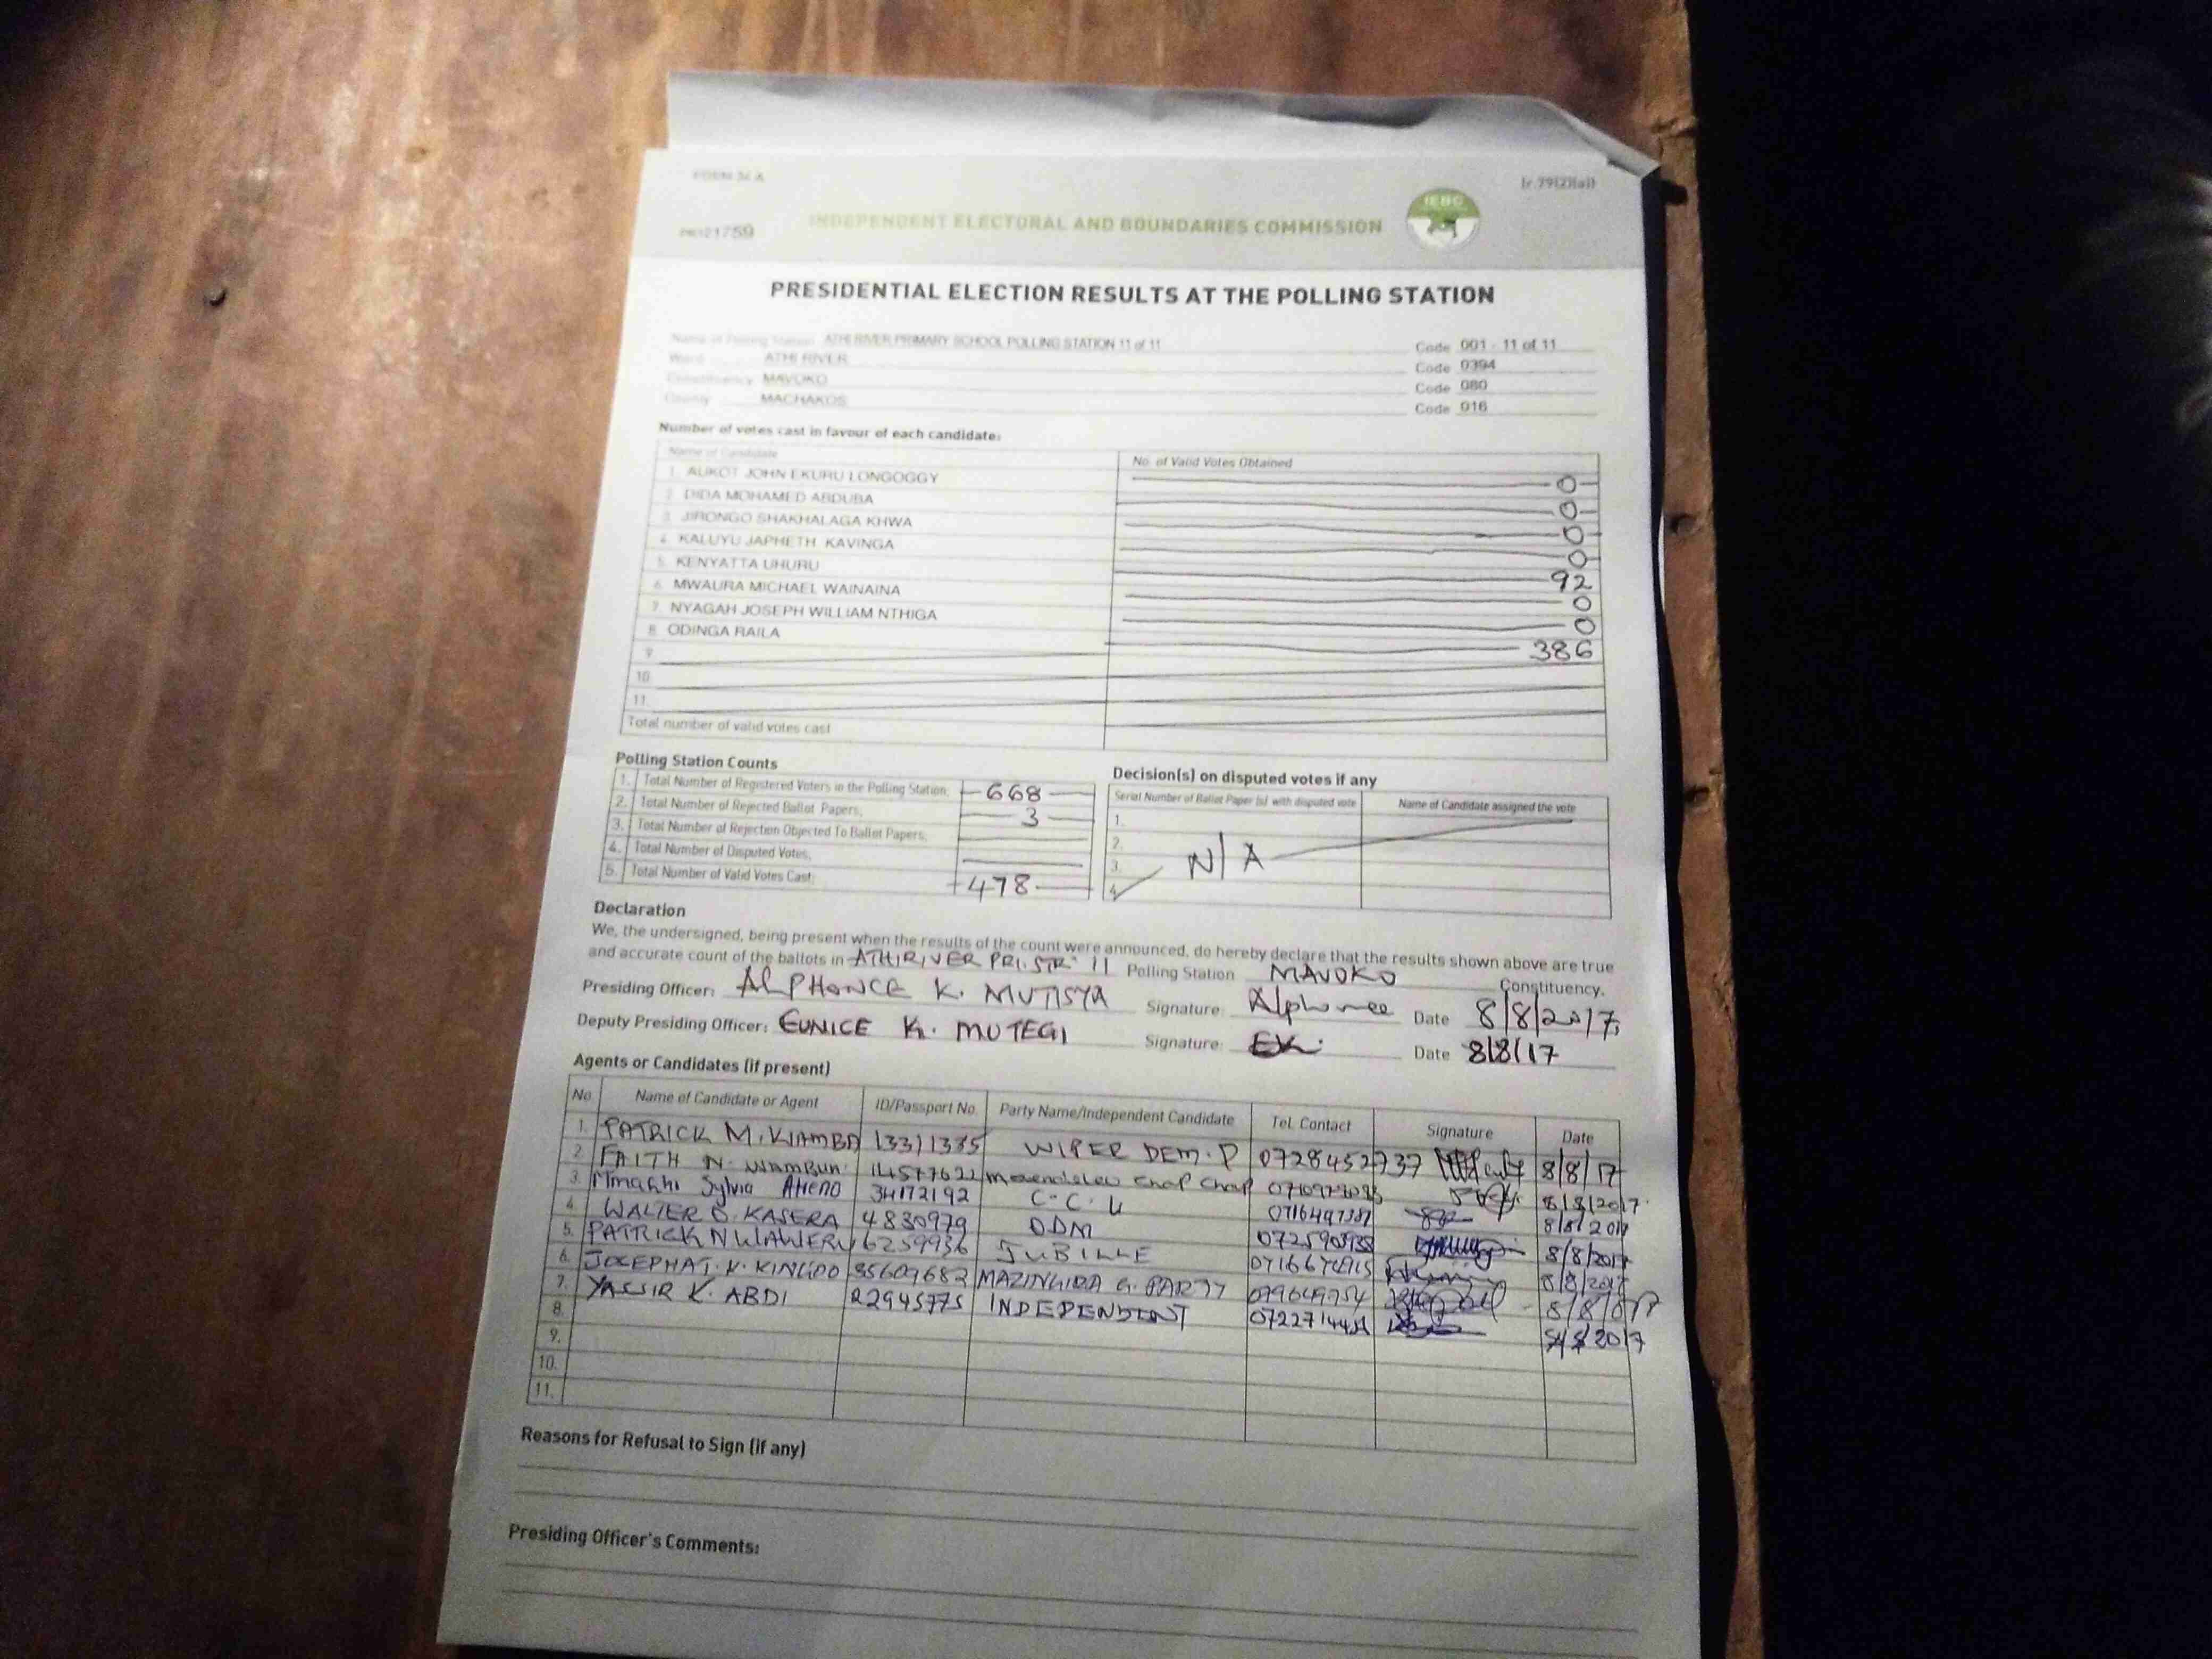 FORM 34 A
[r.79(2)(a)]
INDEPENDENT ELECTORAL AND BOUNDARIES COMMISSION
IEBC
PRESIDENTIAL ELECTION RESULTS AT THE POLLING STATION
Name of Polling Station ATHI RIVER PRIMARY SCHOOL POLLING STATION 11 of 11 Code 001 - 11 of 11
Ward ATHI RIVER Code 0394
Constituency MAVOKO Code 080
County MACHAKOS Code 016
Number of votes cast in favour of each candidate:
Name of Candidate No. of Valid Votes Obtained
1. AUKOT JOHN EKURU LONGOGGY 0
2. DIDA MOHAMED ABDUBA 0
3. JIRONGO SHAKHALAGA KHWA 0
4. KALUYU JAPHETH KAVINGA 0
5. KENYATTA UHURU 92
6. MWAURA MICHAEL WAINAINA 0
7. NYAGAH JOSEPH WILLIAM NTHIGA 0
8. ODINGA RAILA 386
9.
10.
11.
Total number of valid votes cast
Polling Station Counts
1. Total Number of Registered Voters in the Polling Station; 668
2. Total Number of Rejected Ballot Papers; 3
3. Total Number of Rejection Objected To Ballot Papers;
4. Total Number of Disputed Votes;
5. Total Number of Valid Votes Cast; 478
Decision(s) on disputed votes if any
Serial Number of Ballot Paper (s) with disputed vote Name of Candidate assigned the vote
1.
2.
3. N/A
4.
Declaration
We, the undersigned, being present when the results of the count were announced, do hereby declare that the results shown above are true
and accurate count of the ballots in ATHIRIVER PRI. STR 11 Polling Station MAVOKO Constituency.
Presiding Officer: ALPHONCE K. MUTISYA Signature: Alphonce Date 8/8/2017
Deputy Presiding Officer: EUNICE K. MUTEGI Signature: EK. Date 8/8/17
Agents or Candidates (if present)
No. Name of Candidate or Agent ID/Passport No. Party Name/Independent Candidate Tel. Contact Signature Date
1. PATRICK M. KIAMBA 13311335 WIPER DEM. P 0728452737 8/8/17
2. FAITH N. 8/8/2017
3. Sylvia Atieno 34172192 C.C.U 8/8/2017
4. WALTER O. KASERA 4830979 ODM 8/8/2017
5. PATRICK N WAWERU 6259936 JUBILLE 8/8/2017
6. JOSEPHAT. K. 35609682 MAZINGIRA G. PARTY
7. YASSIR K. ABDI 22945775 INDEPENDENT 2017
8.
9.
10.
11.
Reasons for Refusal to Sign (if any)
Presiding Officer's Comments: